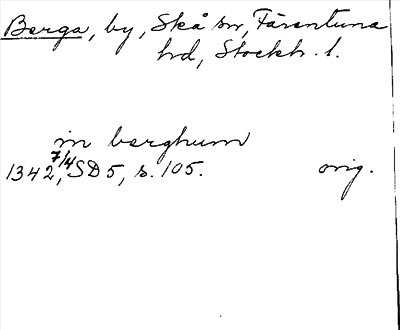 Berga, by, Skå sn, Färentuna
hd, Stockh. l.
in berghum
1342 7/4, SD 5, s. 105. orig.